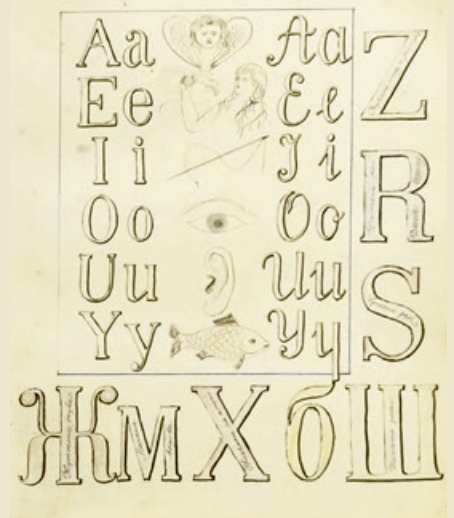 Aa Aa Z
Ee Ee
Ii Ii R
Oo Oo
Uu Uu S
Yy Yy
Ж М Х б Ш